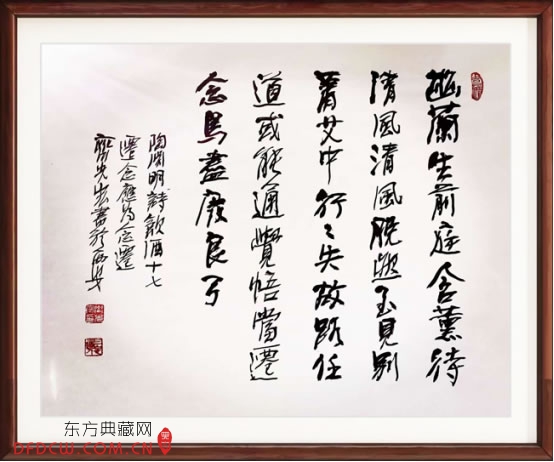 幽蘭生前庭含薰待
清風清風脱然至見別
蕭艾中行〻失故路任
道或能通覺悟當還
念鳥盡廢良弓
陶淵明詩飲酒十七
還念應為念還
書於
东方典藏网
DFDCW.COM.CN